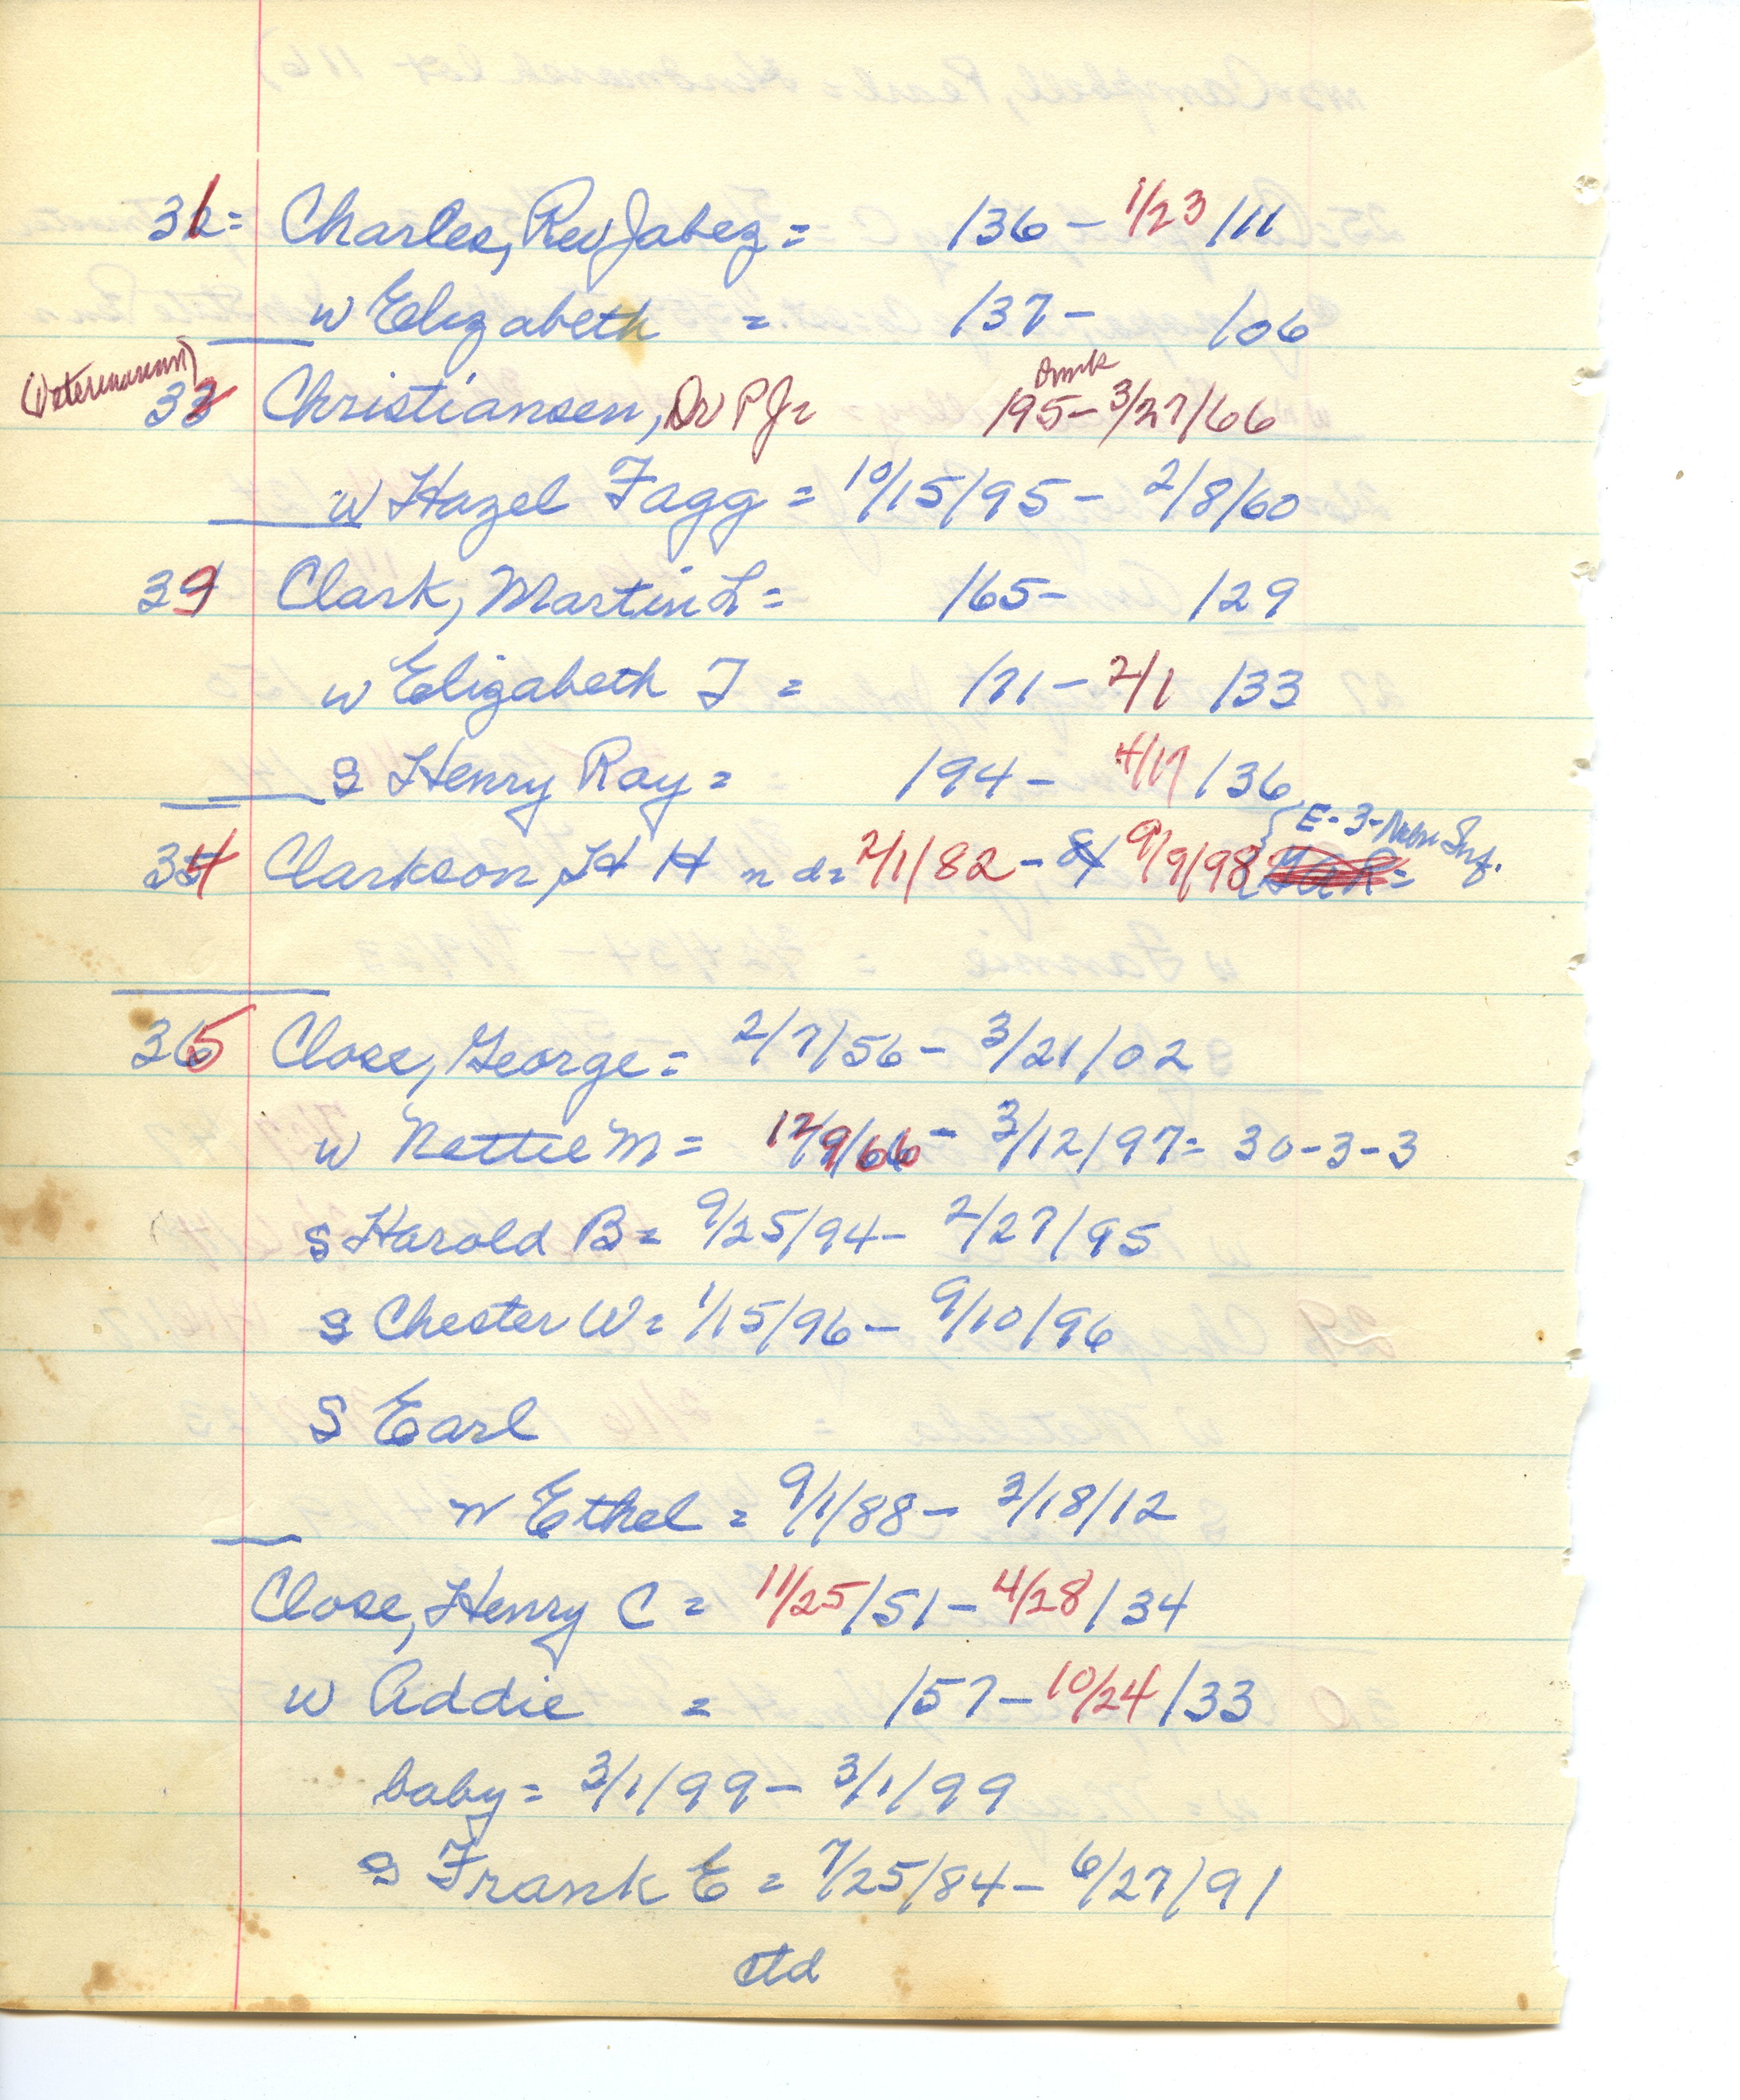 31= Charles, Rev Jabez = /36 - 1/23/11
w Elizabeth = /37 - /06
(Veterinarian)
32 Christiansen, Dr P J = /95 - 3/27/66
w Hazel Fagg = 10/15/95 - 2/8/60
33 Clark, Martin L = /65 - /29
w Elizabeth J = /71 - 2/1/33
s Henry Ray = /94 - 4/17/36
E-3-Nebr Inf.
34 Clarkson, H H n d = 2/1/82 - 9/9/98
35 Close, George = 2/7/56 - 3/21/02
w Nettie M = 12/9/66 - 3/12/97 = 30-3-3
s Harold B = 9/25/94 - 2/27/95
s Chester W = 1/15/96 - 9/10/96
s Earl
w Ethel = 9/1/88 - 2/18/12
Close, Henry C = 11/25/51 - 4/28/34
w Addie = /57 - 10/24/33
baby = 3/1/99 - 3/1/99
s Frank E = 7/25/84 - 6/27/91
ctd